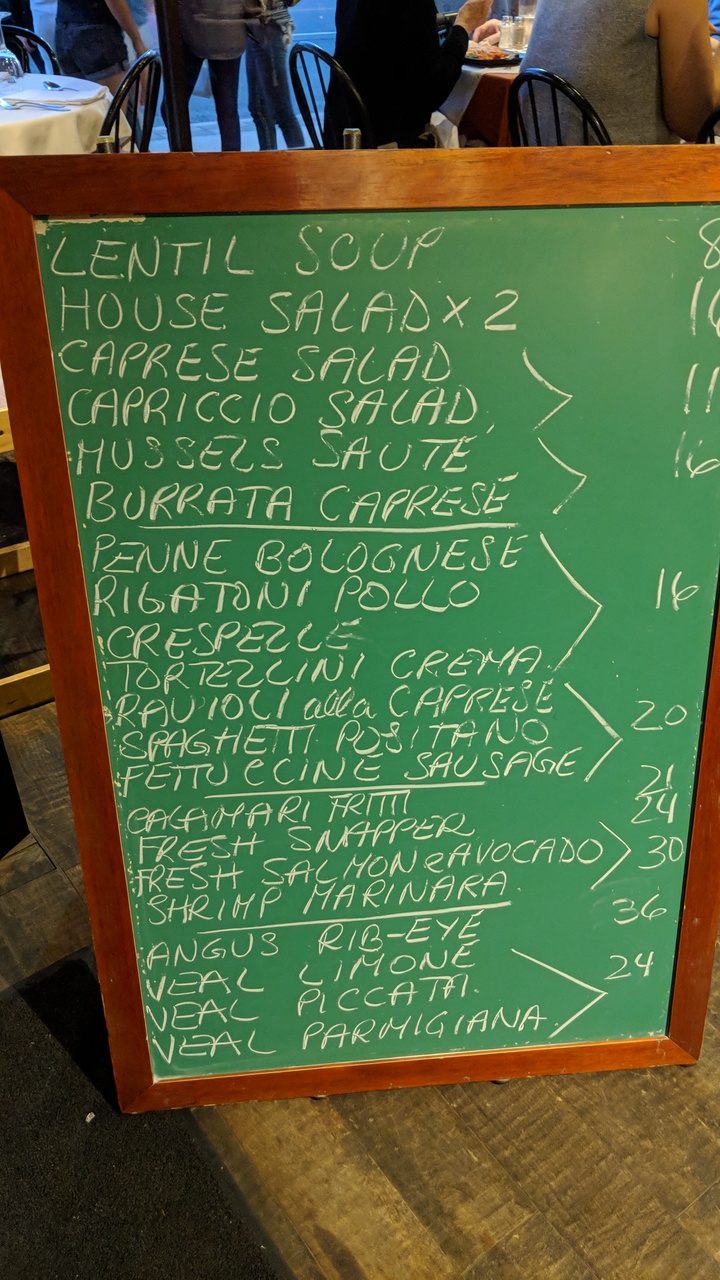 LENTIL SOUP 8
HOUSE SALAD X 2
CAPRESE SALAD
CAPRICCIO SALAD 11
MUSSELS SAUTE 16
BURRATA CAPRESE
PENNE BOLOGNESE
RIGATONI POLLO 16
CRESPELLE
TORTELLINI CREMA
RAVIOLI alla CAPRESE 20
SPAGHETTI POSITANO
FETTUCCINE SAUSAGE 21
CALAMARI FRITTI 24
FRESH SNAPPER
FRESH SALMON e AVOCADO 30
SHRIMP MARINARA
ANGUS RIB-EYE 36
VEAL LIMONE 24
VEAL PICCATA
VEAL PARMIGIANA